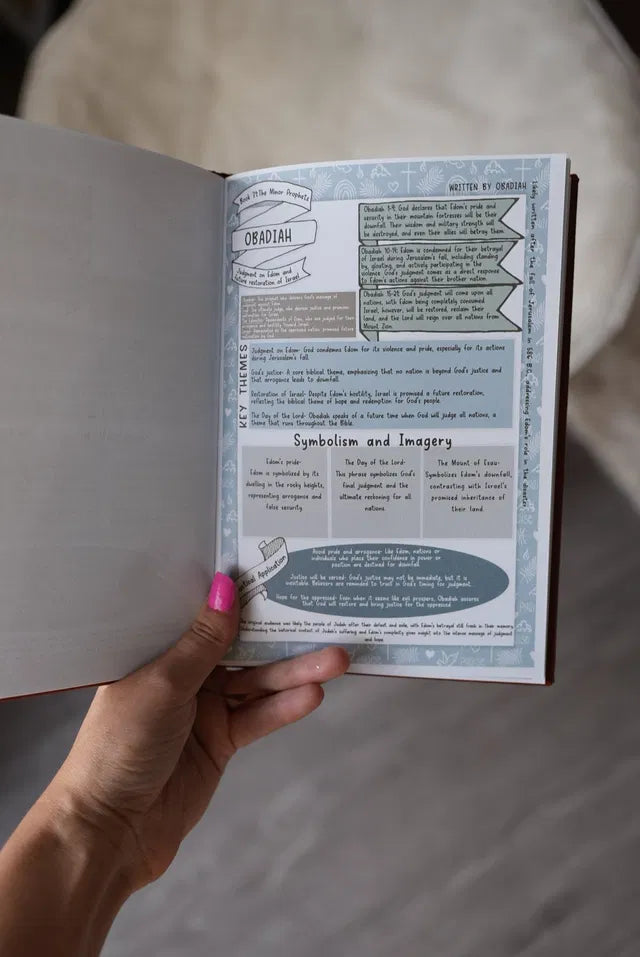 Book 31: The Minor Prophets
OBADIAH
Judgment on Edom and
future restoration of Israel
WRITTEN BY OBADIAH
likely written after the fall of Jerusalem in 586 B.C., addressing Edom's role in the disaster
Obadiah 1-9: God declares that Edom's pride and
security in their mountain fortresses will be their
downfall. Their wisdom and military strength will
be destroyed, and even their allies will betray them.
Obadiah 10-14: Edom is condemned for their betrayal
of Israel during Jerusalem's fall, including standing
by, gloating, and actively participating in the
violence. God's judgment comes as a direct response
to Edom's actions against their brother nation.
Obadiah 15-21: God's judgment will come upon all
nations, with Edom being completely consumed.
Israel, however, will be restored, reclaim their
land, and the Lord will reign over all nations from
Mount Zion.
KEY THEMES
Judgment on Edom- God condemns Edom for its violence and pride, especially for its actions
during Jerusalem's fall.
God's justice- A core biblical theme, emphasizing that no nation is beyond God's justice and
that arrogance leads to downfall.
Restoration of Israel- Despite Edom's hostility, Israel is promised a future restoration,
reflecting the biblical theme of hope and redemption for God's people.
The Day of the Lord- Obadiah speaks of a future time when God will judge all nations, a
theme that runs throughout the Bible.
Symbolism and Imagery
Edom's pride-
Edom is symbolized by its
dwelling in the rocky heights,
representing arrogance and
false security.
The Day of the Lord-
This phrase symbolizes God's
final judgment and the
ultimate reckoning for all
nations.
The Mount of Esau-
Symbolizes Edom's downfall,
contrasting with Israel's
promised inheritance of
their land.
Application
Avoid pride and arrogance- like Edom, nations or
individuals who place their confidence in power or
position are destined for downfall.
Justice will be served- God's justice may not be immediate, but it is
inevitable. Believers are reminded to trust in God's timing for judgment.
Hope for the oppressed- Even when it seems like evil prospers, Obadiah assures
that God will restore and bring justice for the oppressed.
original audience was likely the people of Judah after their defeat and exile, with Edom's betrayal still fresh in their memory.
the historical context of Judah's suffering and Edom's complicity gives insight into the intense message of judgment
and hope.